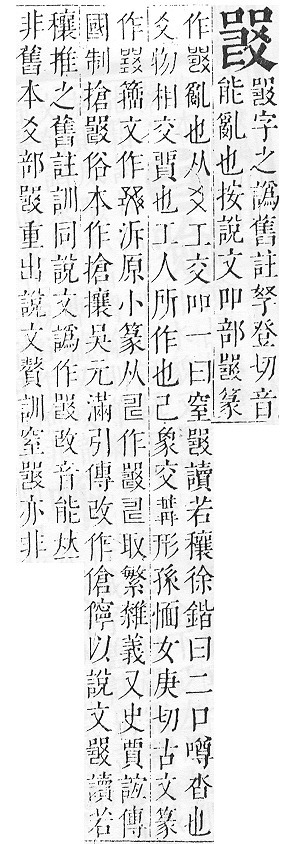 𤕦字之譌舊註拏登切音
能亂也按說文吅部𤕦篆
作𤕦亂也从爻工交吅一曰窒𤕦讀若穰徐鍇曰二口噂沓也
爻物相交貿也工人所作也己象交冓形孫愐女庚切古文篆
作籀文作泝原小篆从㠭作㠭取繁雜義又史賈誼傳
國制搶𤕦俗本作搶攘吳元滿引傳改作傖儜以說文𤕦讀若
穰推之舊註訓同說文譌作改音能𠀤
非舊本爻部𤕦重出說文贅訓窒𤕦亦非